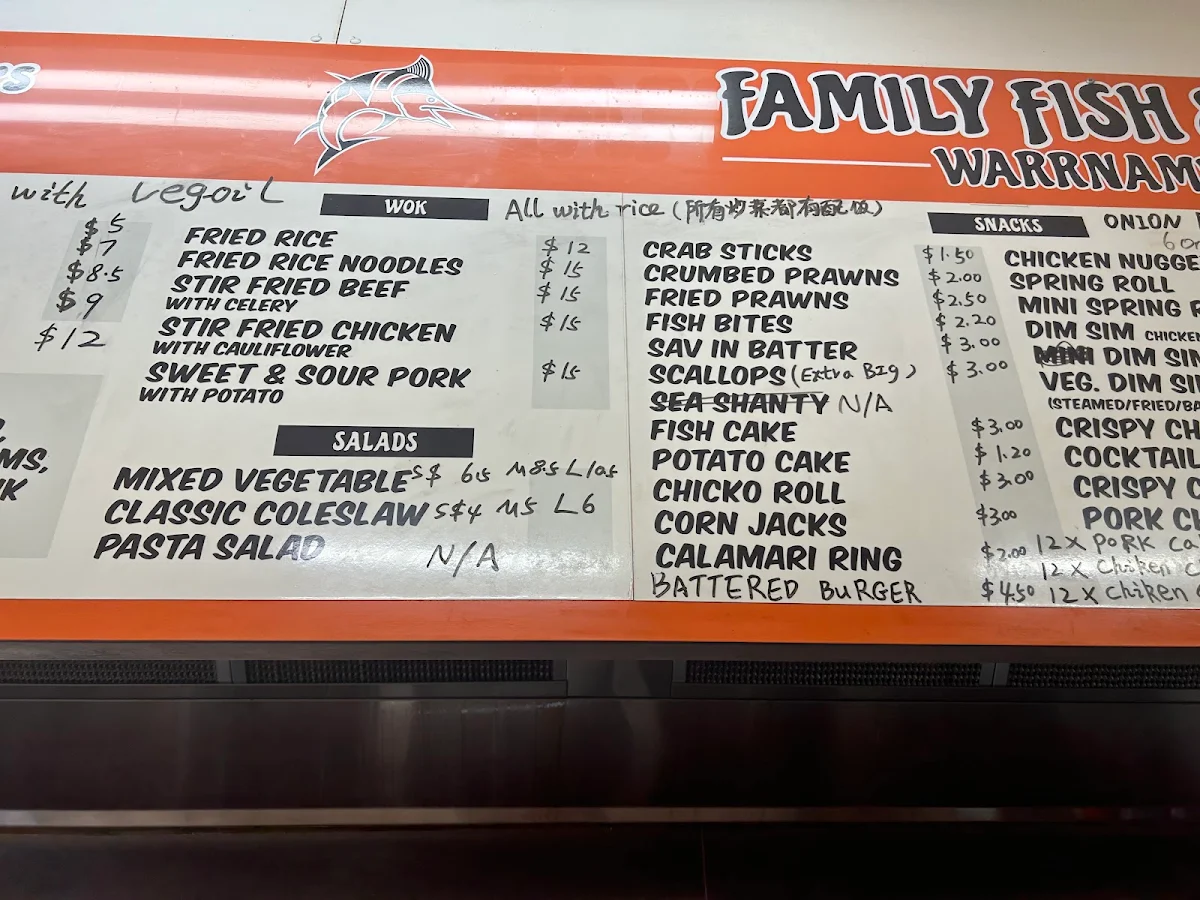 FAMILY FISH &
WARRNAM
with vegoil
$5
$7
$8.5
$9
$12
MS,
WOK
All with rice (所有炒菜都有配饭)
FRIED RICE $12
FRIED RICE NOODLES $15
STIR FRIED BEEF $15
WITH CELERY
STIR FRIED CHICKEN $15
WITH CAULIFLOWER
SWEET & SOUR PORK $15
WITH POTATO
SALADS
MIXED VEGETABLE S$ 6.5 M8.5 L10.5
CLASSIC COLESLAW S$4 M5 L6
PASTA SALAD N/A
SNACKS
CRAB STICKS $1.50
CRUMBED PRAWNS $2.00
FRIED PRAWNS $2.50
FISH BITES $2.20
SAV IN BATTER $3.00
SCALLOPS (Extra BIG) $3.00
SEA SHANTY N/A
FISH CAKE $3.00
POTATO CAKE $1.20
CHICKO ROLL $3.00
CORN JACKS $3.00
CALAMARI RING $2.00
BATTERED BURGER $4.50
ONION
6
CHICKEN NUGGE
SPRING ROLL
MINI SPRING R
DIM SIM CHICKEN
MINI DIM SIM
VEG. DIM SI
(STEAMED/FRIED/BA
CRISPY CH
COCKTAIL
CRISPY C
PORK C
12 X PORK Ca
12 X Chiken C
12 X Chiken